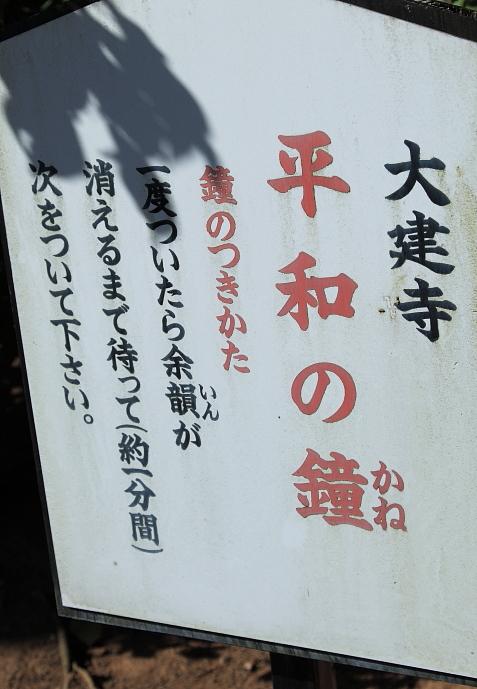 大建寺
平和の鐘
かね
鐘のつきかた
一度ついたら余韻が
いん
消えるまで待って(約一分間)
次をついて下さい。